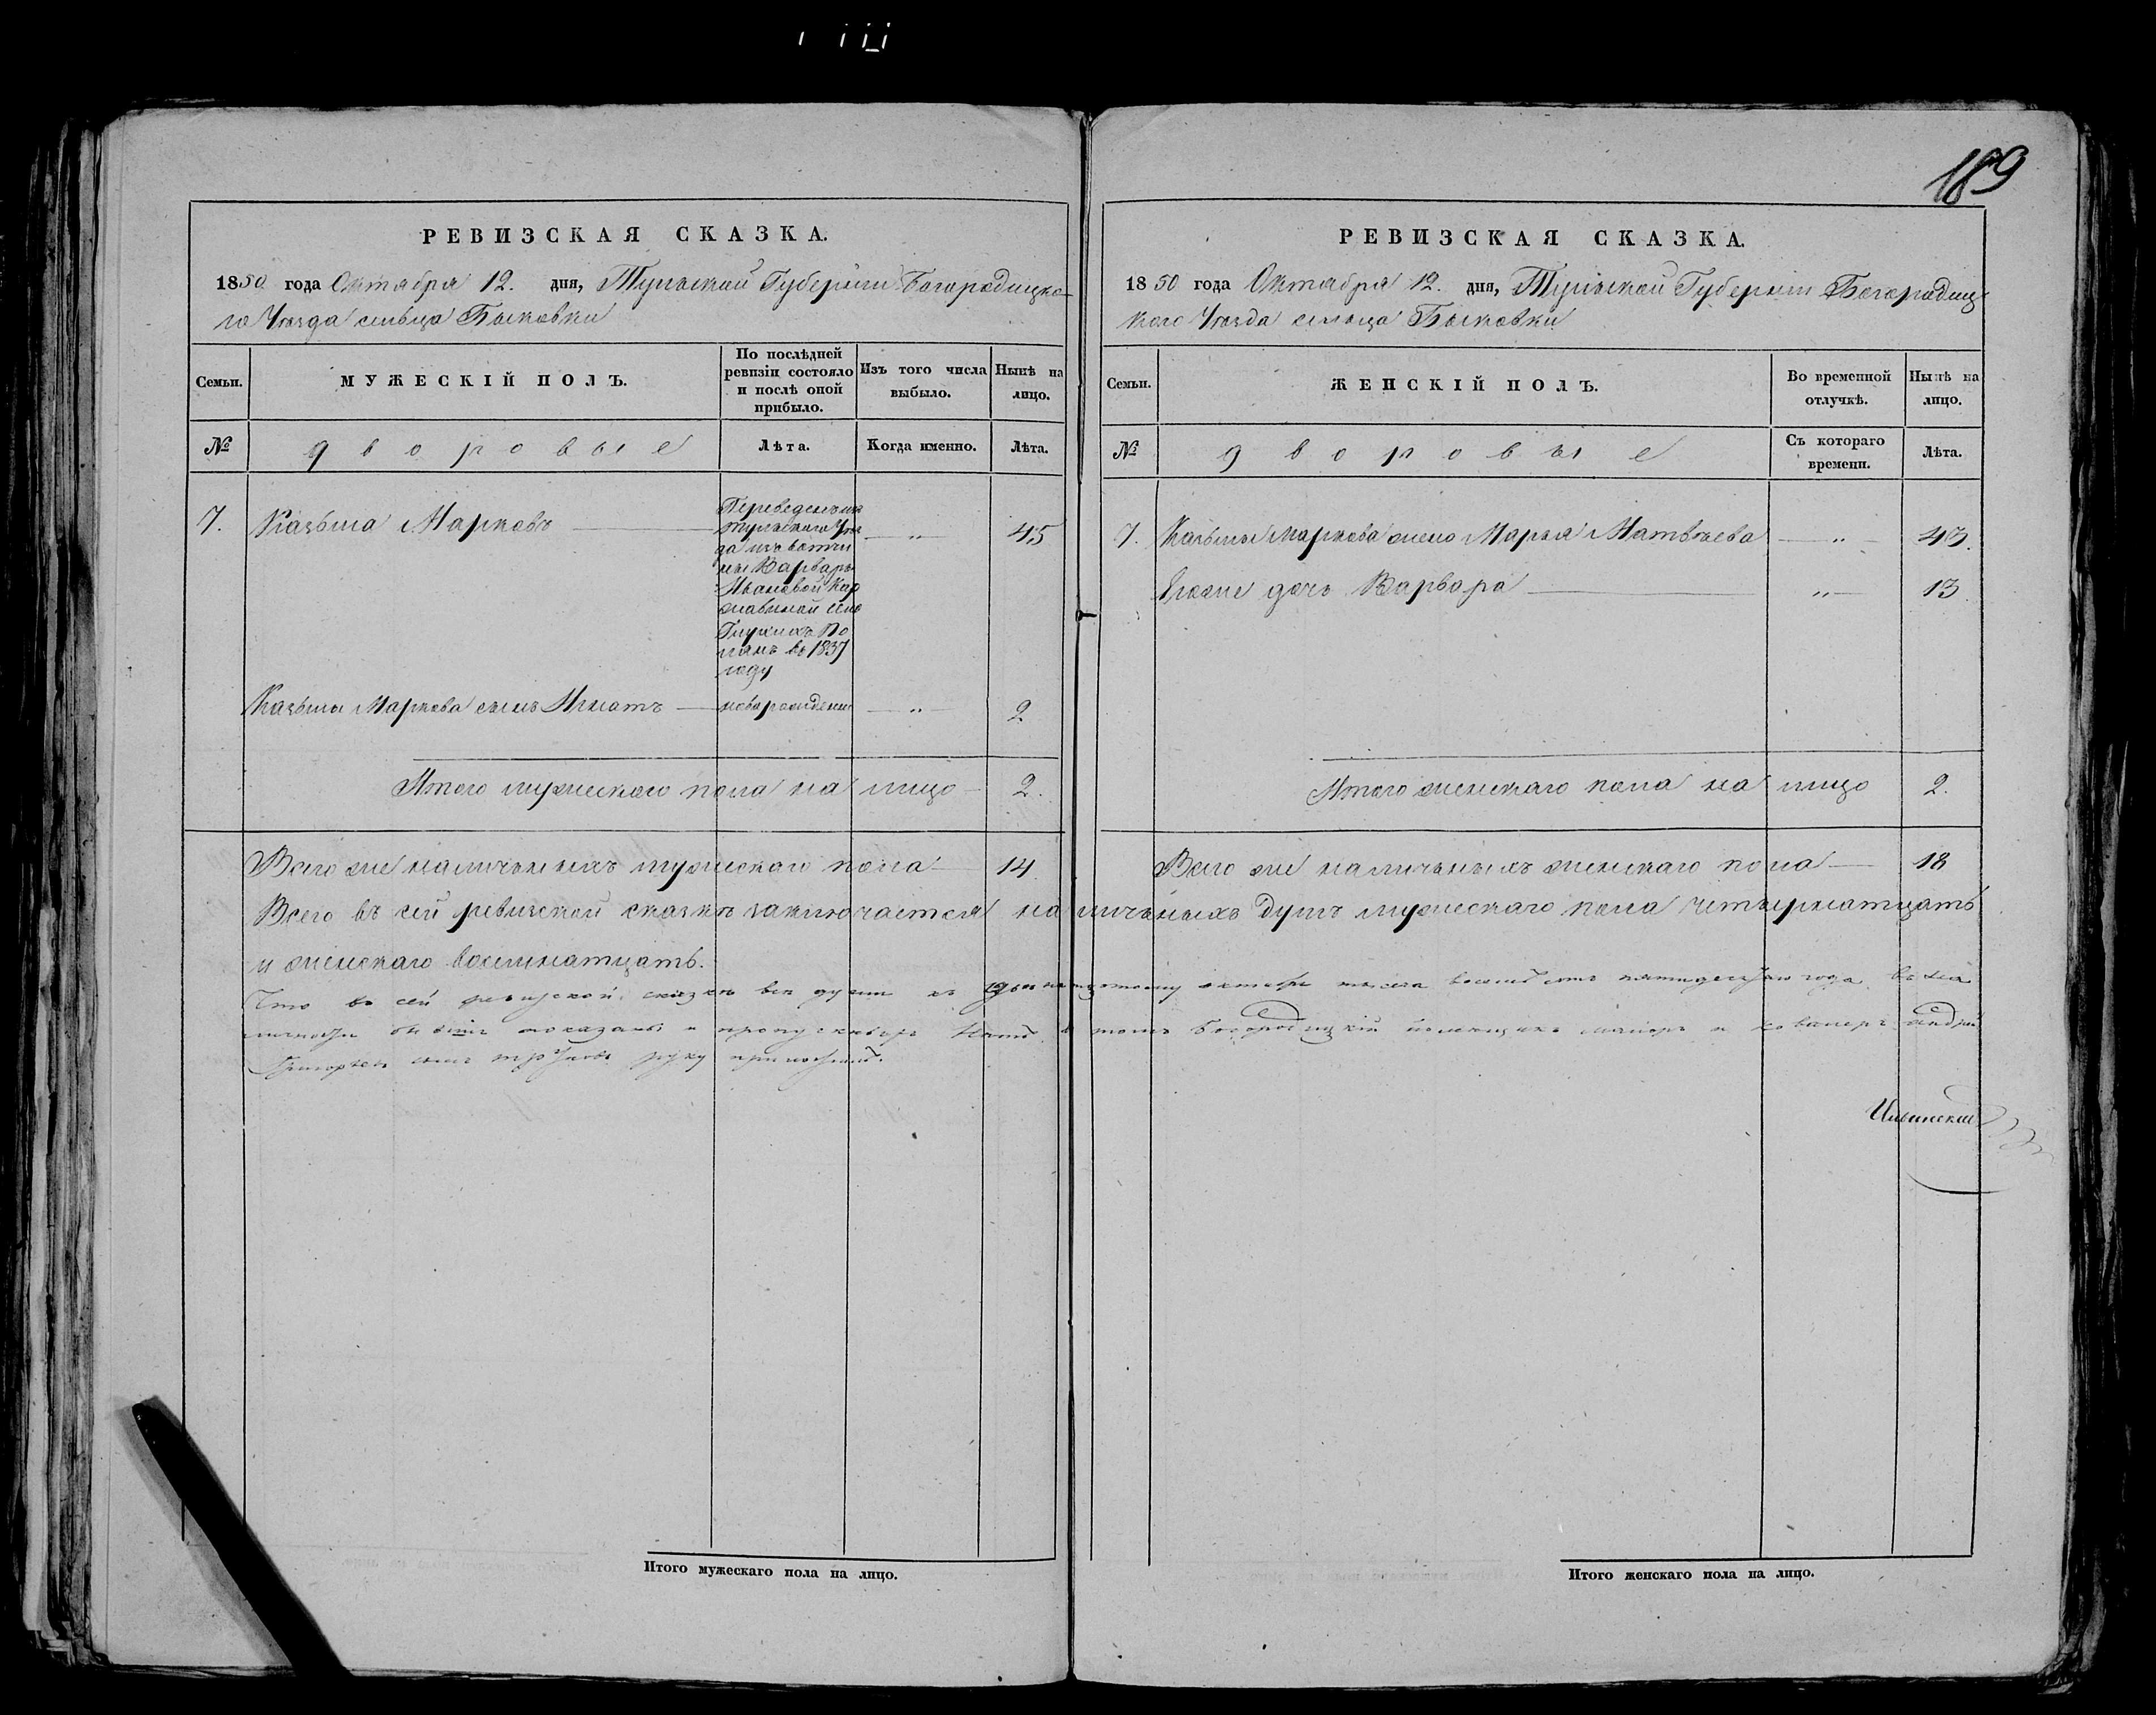 189
РЕВИЗСКАЯ СКАЗКА.
1850 года Октября 12. дня, Тульской Губернiи Богородицка-
го Уѣзда сельца Быковки
Семьи.
МУЖЕСКІЙ ПОЛЪ.
По послѣдней
ревизіи состояло
и послѣ оной
прибыло.
Изъ того числа
выбыло.
Нынѣ на
лицо.
№
дворовые
Лѣта.
Когда именно.
Лѣта.
7. Казьма Марковъ
Переведенъ из
Тульскаго Уѣз
да изъ вотчи
ны Варвары
Ивановой
въ 1837
году
„
45
Казьмы Маркова сынъ Игнатъ
новорожденн
„
2
Итого мужескаго пола на лицо 2.
Всего же наличьныхъ мужескаго пола 14
РЕВИЗСКАЯ СКАЗКА.
1850 года Октября 12. дня, Тульской Губернiи Богородиц
каго Уѣзда сельца Быковки
Семьи.
ЖЕНСКІЙ ПОЛЪ.
Во временной
отлучкѣ.
Нынѣ на
лицо.
№
дворовые
Съ котораго
времени.
Лѣта.
7. Казьмы Маркова жена Марья Матвѣева „ 43.
Ево же дочь Варвара „ 13
Итого женскаго пола на лицо 2.
Всего же наличьныхъ женскаго пола 18
Всего въ сей ревизской сказкѣ заключается наличьныхъ душъ мужескаго пола четырнатцать
и женскаго восемнатцать.
Что въ сей ревизской сказкѣ все души къ октября года в на
личности показаны и нетъ в томъ Богородицкій помещикъ маiоръ и ковалеръ андрей
Григорьевъ сынъ руку приложилъ.
Итого мужескаго пола на лицо.
Итого женскаго пола на лицо.